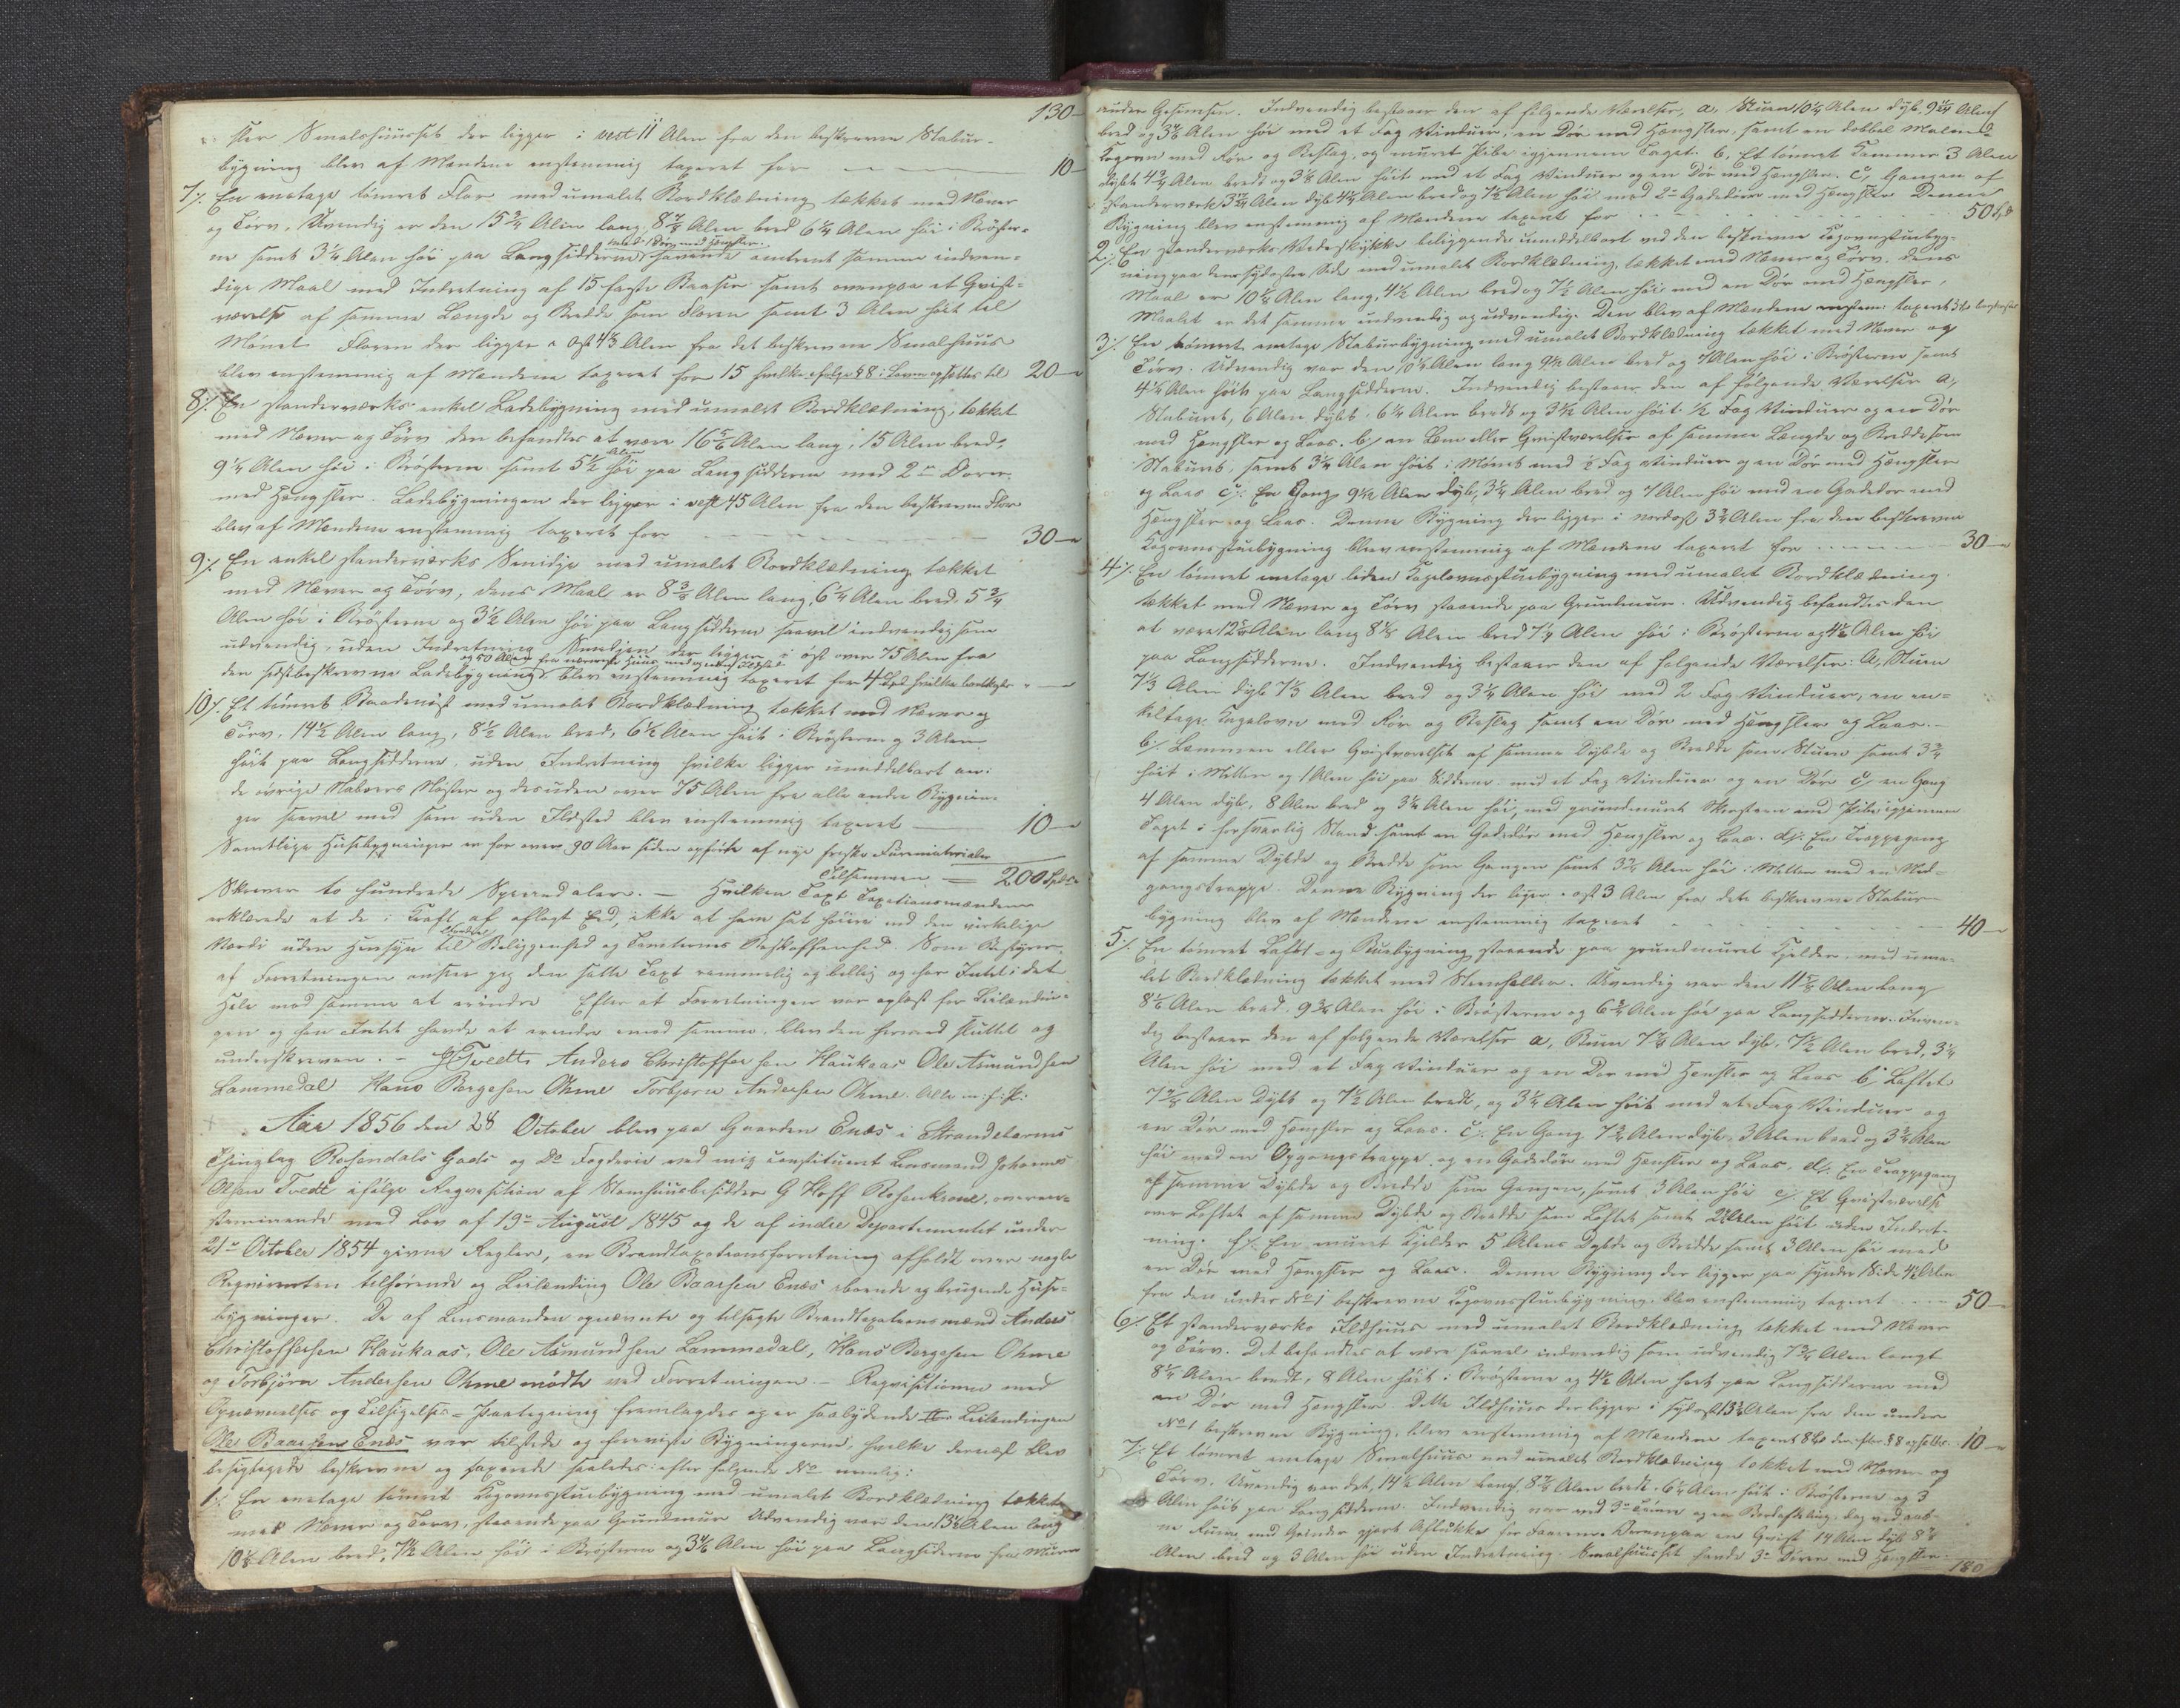 130-
ster Smalehuusset der ligger i vest 11 Alen fra den beskrevne Stabur-
bygning blev af Mændene enstemmig taxeret for 10-
7/. En enetages tømret Flor med umalet Bordklædning tækket med Næver
og Törv. Udvendig er den 15 3/4 Alen lang, 8 7/8 Alen bred 6 1/4 Alen höi i Bröster-
ne samt 3 1/4 Alen höi paa Langsidderne, havende omtrent samme indven-
med 1 Dör med Hængsler.
dige Maal med Indretning af 15 faste Baaser samt ovenpaa et Qvist-
værelse af samme Længde og Bredde som Floren samt 3 Alen höit til
Mönet. Floren der ligger i Ost 43 Alen fra det beskrevne Smalehuus
blev enstemmig af Mændene taxeret for 15 hvilke ifølge § 8 i Loven opsættes til 20-
8/. En standerværks enkel Ladebygning med umalet Bordklædning, tækket
med Næver og Törv den befandtes at være 16 5/6 Alen lang, 15 Alen bred,
9 1/4 Alen höi i Brösterne samt 5 1/2 Alen höi paa Langsidderne med 2de Dörer
med Hængsler. Ladebygningen der ligger i vest 45 Alen fra den beskrevne Flor
blev af Mændene enstemmig taxeret for 30-
9/. En enkel standerværks Smidje med umalet Bordklædning tækket
med Næver og Törv, dens Maal er 8 3/8 Alen lang, 6 1/4 Alen bred 5 3/4
Alen höi i Brösterne og 3 1/2 Alen höi paa Langsidderne saavel indvendig som
udvendig, uden Indretning. Smedjen der ligger i öst over 75 Alen fra
og 50 Alen fra nærmeste Huus med og uden Ildsted
den sidstbeskrevne Ladebygning blev enstemmig taxeret for 4 Spd hvilke bortkastes -
10/. Et tömret Baadenöst med umalet Bordklædning tækket med Næver og
Törv, 14 1/2 Alen lang, 8 1/2 Alen bred, 6 1/2 Alen höit i Brösterne og 3 Alen
höit paa Langsidderne, uden Indretning hvilke ligger umiddelbart ved
de övrige Naboers Nöster og desuden over 75 Alen fra alle andre Bygnin-
ger saavel med som uden Ildsted blev enstemmig taxeret 10-
Samtlige Huusebygninger er for over 90 Aar siden opförte af nye friske Furematerialer
Tilsammen 200 Spd
Skriver to hundrede Speciedaler. - Hvilken Taxt Taxationsmændene
erklærede at de i Kraft af aflagt Eed, ikke at have sat höiere end den virkelige
Værdi uden Hensyn til Beliggenhed og Tomternes Beskaffenhed. Som Bestyrer
af Forretningen anseer jeg den satte Taxt rummelig og billig og har Intet i det
Hele mod samme at erindre. Efter at Forretningen var oplæst for Leilændin-
gen og han Intet havde at erindre imod samme, blev den hermed sluttet og
underskreven. - J. O. Tvedt. Anders Christoffersen Haukaas Ole Asmundsen
Lammedal Hans Borgesen Ohme Torbjørn Andersen Ohme. Alle m. f. P.
Aar 1856 den 28 October blev paa Gaarden Enæs i Strandebarms
Thinglag Rosendals Gods og Do Fogderie ved mig constitueret Lensmand Johannes
Olsen Tvedt ifölge Reqvisition af Stamhuusbesidder G Hoff Rosenkrone, overens-
stemmende med Lov af 19de August 1845 og de af indre Departementet under
21de October 1854 givne Regler, en Brandtaxationsforretning afholdt over nogle
Reqvirenten tilhørende og Leilænding Ole Baarsen Enæs iboende og brugende Huse-
bygninger. De af Lensmanden opnævnte og tilsagte Brandtaxationsmænd Anders
Christoffersen Haukaas, Ole Asmundsen Lammedal, Hans Borgesen Ohme
og Torbjørn Andersen Ohme mödte ved Forretningen. - Reqvisitionen med
Opnævnelses og Tilsigelses-Paategning fremlagdes og er saalydende Leilændingen
Ole Baarsen Enæs var tilstede og foreviste Bygningerne, hvilke dernæst blev
besigtigede beskrevne og taxerede saaledes efter følgende No nemlig:
1/. En enetages tömret Kogovnsstuebygning med umalet Bordklædning tækket
med Næver og Törv, staaende paa Grundmuur. Udvendig var den 13 1/4 Alen lang
10 1/8 Alen bred, 7 1/2 Alen höi i Brösterne og 3 3/4 Alen höi paa Langsidderne fra Muren
under Gesimsen. Indvendig bestaaer den af fölgende Værelser, a, Stuen 10 1/4 Alen dyb, 9 1/4 Alen
bred og 3 3/8 Alen höi med et Fag Vinduer, en Dör med Hængsler, samt en dobbel Malm-
Kogovn med Rör og Beslag, og muret Pibe igjennem Taget. b, Et tömret Kammer 3 Alen
dybt 4 3/4 Alen bredt og 3 3/8 Alen höit med et Fag Vinduer og en Dör med Hængsler. c, Gangen af
Standerværk 3 1/4 Alen dyb 4 1/4 Alen bred og 7 1/2 Alen höi med 2de Gadedörer med Hængsler. Denne
Bygning blev enstemmig af Mændene taxeret for 50 Spd
2/. En Standerværks Vedeskykke beliggende umiddelbart ved den beskrevne Kogovnsstuebyg-
ning paa den sydostre Side med umalet Bordklædning, tækket med Næver og Törv. dens
Maal er 10 1/8 Alen lang, 4 1/2 Alen bred og 7 1/2 Alen höi med en Dör med Hængsler,
Maalet er det samme indvendig og udvendig. Den blev af Mændene enstem: taxeret 3 Spd bortkastes
3/. En tömret enetages Staburbygning med umalet Bordklædning tækket med Næver og
Törv. Udvendig var den 10 1/8 Alen lang 9 1/2 Alen bred og 7 Alen höi i Brösterne samt
4 1/4 Alen höit paa Langsidderne. Indvendig bestaaer den af fölgende Værelser a,
Staburet, 6 Alen dybt, 6 1/4 Alen bredt og 3 1/2 Alen höit 1/2 Fag Vinduer og en Dör
med Hængsler og Laas. b, en Lem eller Qvistværelse af samme Længde og Bredde som
Staburet, samt 3 1/4 Alen höit i Mönet med 1/2 Fag Vinduer og en Dör med Hængsler
og Laas. c/. En Gang 9 1/2 Alen dyb, 3 1/4 Alen bred og 7 Alen höi med en Gadedör med
Hængsler og Laas. Denne Bygning der ligger i nordost 3 3/4 Alen fra den beskrevne
Kogovnsstuebygning blev enstemmig af Mændene taxeret for 30-
4/. En tömret enetages liden Kagelovnsstuebygning med umalet Bordklædning
tækket med Næver og Törv staaende paa Grundmuur. Udvendig befandtes den
at være 12 3/8 Alen lang 8 1/8 Alen bred 7 1/4 Alen höi i Brösterne og 4 1/2 Alen höi
paa Langsidderne. Indvendig bestaaer den af fölgende Værelser: a, Stuen
7 1/3 Alen dyb 7 1/3 Alen bred og 3 1/4 Alen höi med 2 Fag Vinduer, en en-
keltages Kagelovn med Rör og Beslag samt en Dör med Hængsler og Laas. -
b/. Lemmen eller Qvistværelset af samme Dybde og Bredde som Stuen samt 3 3/4
höit i Mitten og 1 Alen höi paa Sidderne med et Fag Vinduer og en Dör c, en Gang
4 Alen dyb, 8 Alen bred og 3 1/4 Alen höi, med grundmuret Skorsteen med Pibe igjennem
Taget i forsvarlig Stand samt en Gadedör med Hængsler og Laas. d/. En Trappegang
af samme Dybde og Bredde som Gangen samt 3 3/4 Alen höi i Mitten med en Ned-
gangstrappe. Denne Bygning der ligger i ost 3 Alen fra det beskrevne Stabur-
bygning blev af Mændene enstemmig taxeret 40-
5/. En tömret Lofts- og Buebygning staaende paa grundmuret Kjelder, med uma-
let Bordklædning tækket med Steenheller. Udvendig var den 11 5/8 Alen lang
8 1/8 Alen bred 9 3/4 Alen höi i Brösterne og 6 3/4 Alen höi paa Langsidderne. Indven-
dig bestaaer den af fölgende Værelser a, Buen 7 7/8 Alen dyb, 7 1/2 Alen bred, 3 1/4
Alen höi med et Fag Vinduer og en Dör med Hængsler og Laas b, Loftet
7 7/8 Alen dybt og 7 1/2 Alen bredt, og 3 1/4 Alen höit med et Fag Vinduer og
en Dör med Hængsler og Laas. c/. En Gang 7 3/4 Alen dyb, 3 Alen bred og 3 3/4 Alen
höi med en Opgangstrappe og en Gadedör med Hængsler og Laas, d/. En Trappegang
af samme Dybde og Bredde som Gangen, samt 3 Alen höi e/. Et Qvistværelse
over Loftet af samme Dybde og Bredde som Loftet samt 2 Alen höit uden Indret-
ning. f/. En muret Kjelder 5 Alens Dybde og Bredde samt 3 Alen höi med
en Dör med Hængsler og Laas. Denne Bygning der ligger paa syndre Side 4 1/2 Alen
fra den under No 1 beskrevne Kogovnsstuebygning blev enstemmig taxeret 50-
6/. Et standerværks Ildhuus med umalet Bordklædning tækket med Næver
og Törv. Det befandtes at være saavel indvendig som udvendig 7 3/4 Alen langt
8 1/4 Alen bredt, 8 Alen höit i Brösterne og 4 1/2 Alen höit paa Langsidderne med
en Dör med Hængsler. Dette Ildhuus der ligger i sydost 13 3/4 Alen fra den under
No 1 beskrevne Bygning, blev enstemmig af Mændene taxeret 8 Spd der efter § 8 opsættes 10-
7/. Et tömret enetages Smalehuus med umalet Bordklædning tækket med Næver og
Törv. Udvendig var det, 14 1/2 Alen langt 8 7/8 Alen bredt, 6 1/4 Alen höit i Brösterne og 3
Alen höit paa Langsidderne. Indvendig var ved 3de og en Bordafdeling dog ved aab-
ne Rum med Grinder gjort Aflukke for Faarene. Ovenpaa en Qvist 14 Alen dyb 8 3/8
Alen bred og 3 Alen höi uden Indretning. Smalehuuset havde 3de Dörer med Hængsler.
180